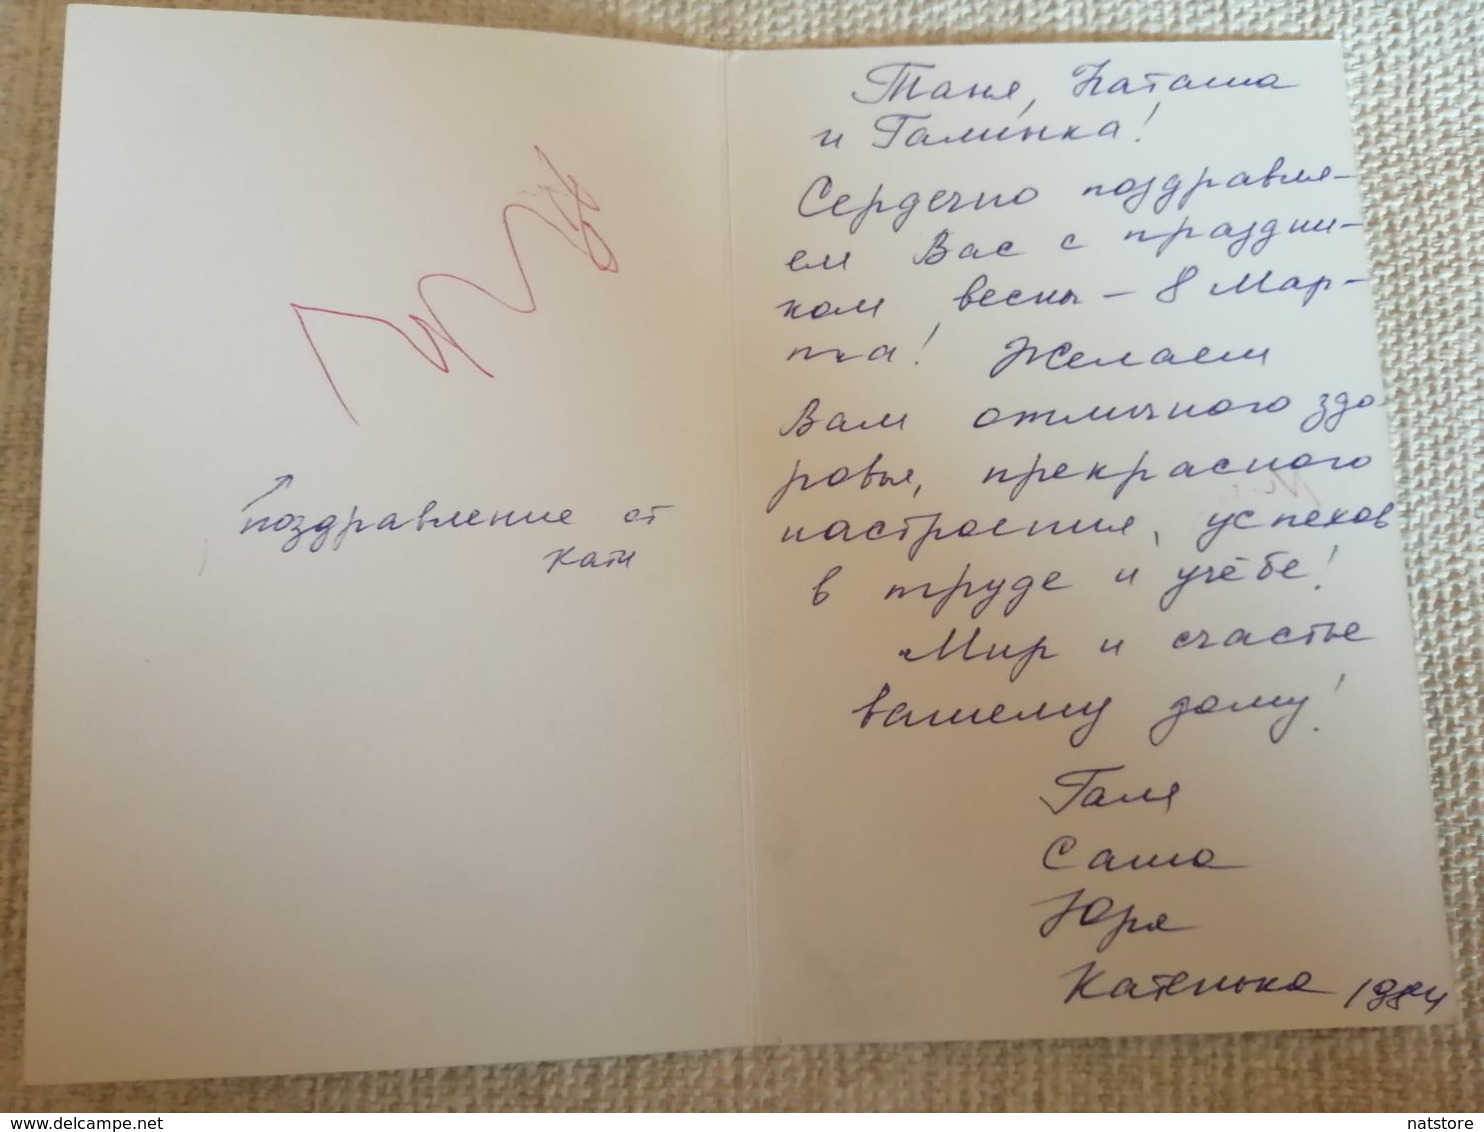 поздравление от
Кати
Таня, Наташа
и Галинка!
Сердечно поздравля-
ем Вас с праздни-
ком весны - 8 Мар-
та! Желаем
Вам отличного здо-
ровья, прекрасного
настроения, успехов
в труде и учёбе!
Мир и счастье
вашему дому!
Галя
Саша
Юря
Катенька 1984
delcampe.net
natstore